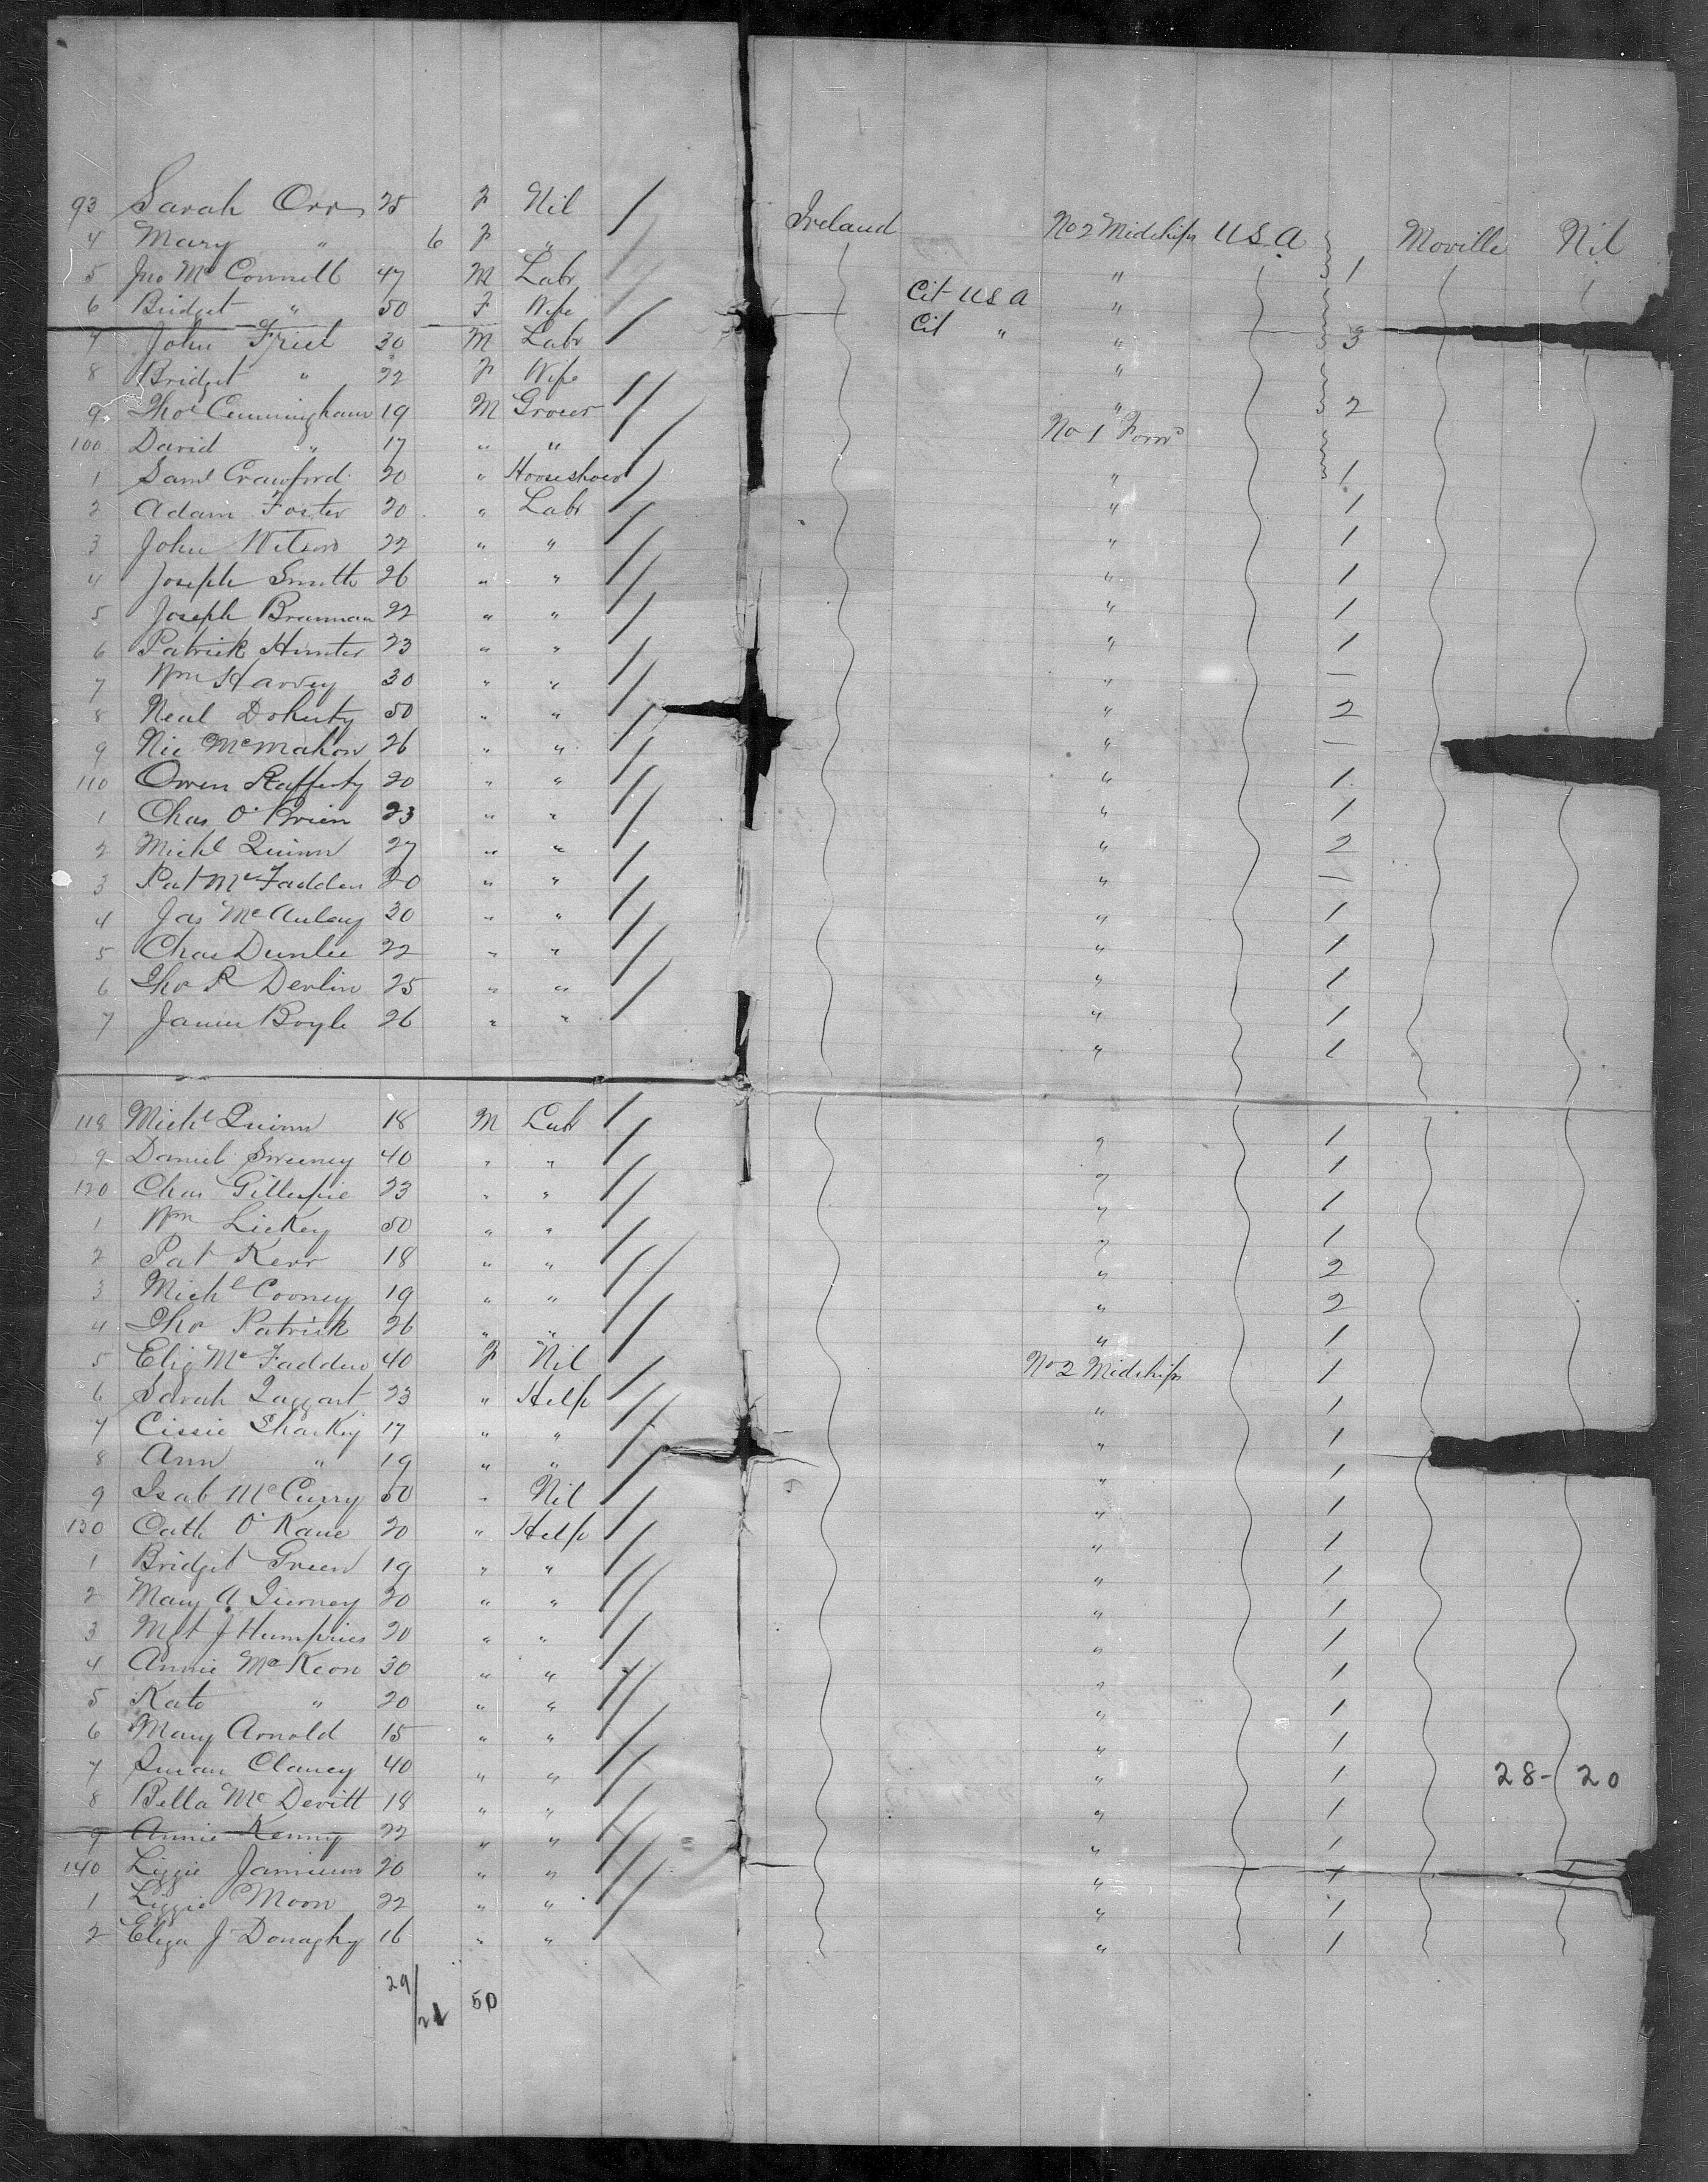 93 Sarah Orr 25 F Nil Ireland No 2 Midships U S A Moville Nil
4 Mary " 6 F " " 1
5 Jno McConnell 47 M Labr Cit U S A "
6 Bridget " 50 F Wife Cit " " 3
7 John Friel 30 M Labr "
8 Bridget " 22 F Wife " 2
9 Thos Cunningham 19 M Grocer No 1 Forwd
100 David " 17 " " " 1
1 Saml Crawford 20 " Horseshoer " 1
2 Adam Foster 20 " Labr " 1
3 John Wilson 22 " " " 1
4 Joseph Smith 26 " " " 1
5 Joseph Brannan 22 " " " 1
6 Patrick Hunter 23 " " " —
7 Wm Harvey 30 " " " 2
8 Neal Doherty 50 " " " —
9 Nic McMahon 26 " " " 1
110 Owen Rafferty 20 " " " 1
1 Chas O'Brien 23 " " " 2
2 Michl Quinn 27 " " " —
3 Pat McFadden 20 " " " 1
4 Jas McAulay 30 " " " 1
5 Chas Dunlee 22 " " " 1
6 Thos R Devlin 25 " " " 1
7 James Boyle 26 " " " 1
118 Michl Quinn 18 M Labr " 1
9 Daniel Sweeney 40 " " " 1
120 Chas Gillespie 23 " " " 1
1 Wm Lickey 50 " " " 1
2 Pat Kerr 18 " " " 2
3 Michl Cooney 19 " " " 2
4 Thos Patrick 26 " " " 1
5 Eliz McFadden 40 F Nil No 2 Midships 1
6 Sarah Taggart 23 " Help " 1
7 Cissie Sharkey 17 " " " 1
8 Ann " 19 " " " 1
9 Isab McCurry 50 " Nil " 1
130 Cath O'Kane 20 " Help " 1
1 Bridget Green 19 " " " 1
2 Mary A Tierney 20 " " " 1
3 Mgt J Humpries 20 " " " 1
4 Annie McKeon 30 " " " 1
5 Kate " 20 " " " 1
6 Mary Arnold 15 " " " 1
7 Susan Clancy 40 " " " 1 28-20
8 Bella McDevitt 18 " " " 1
9 Annie Kenny 22 " " " 1
140 Lizzie Jamieson 20 " " " 1
1 Lizzie Moon 22 " " " 1
2 Eliza J Donaghy 16 " " " 1
29/21 50